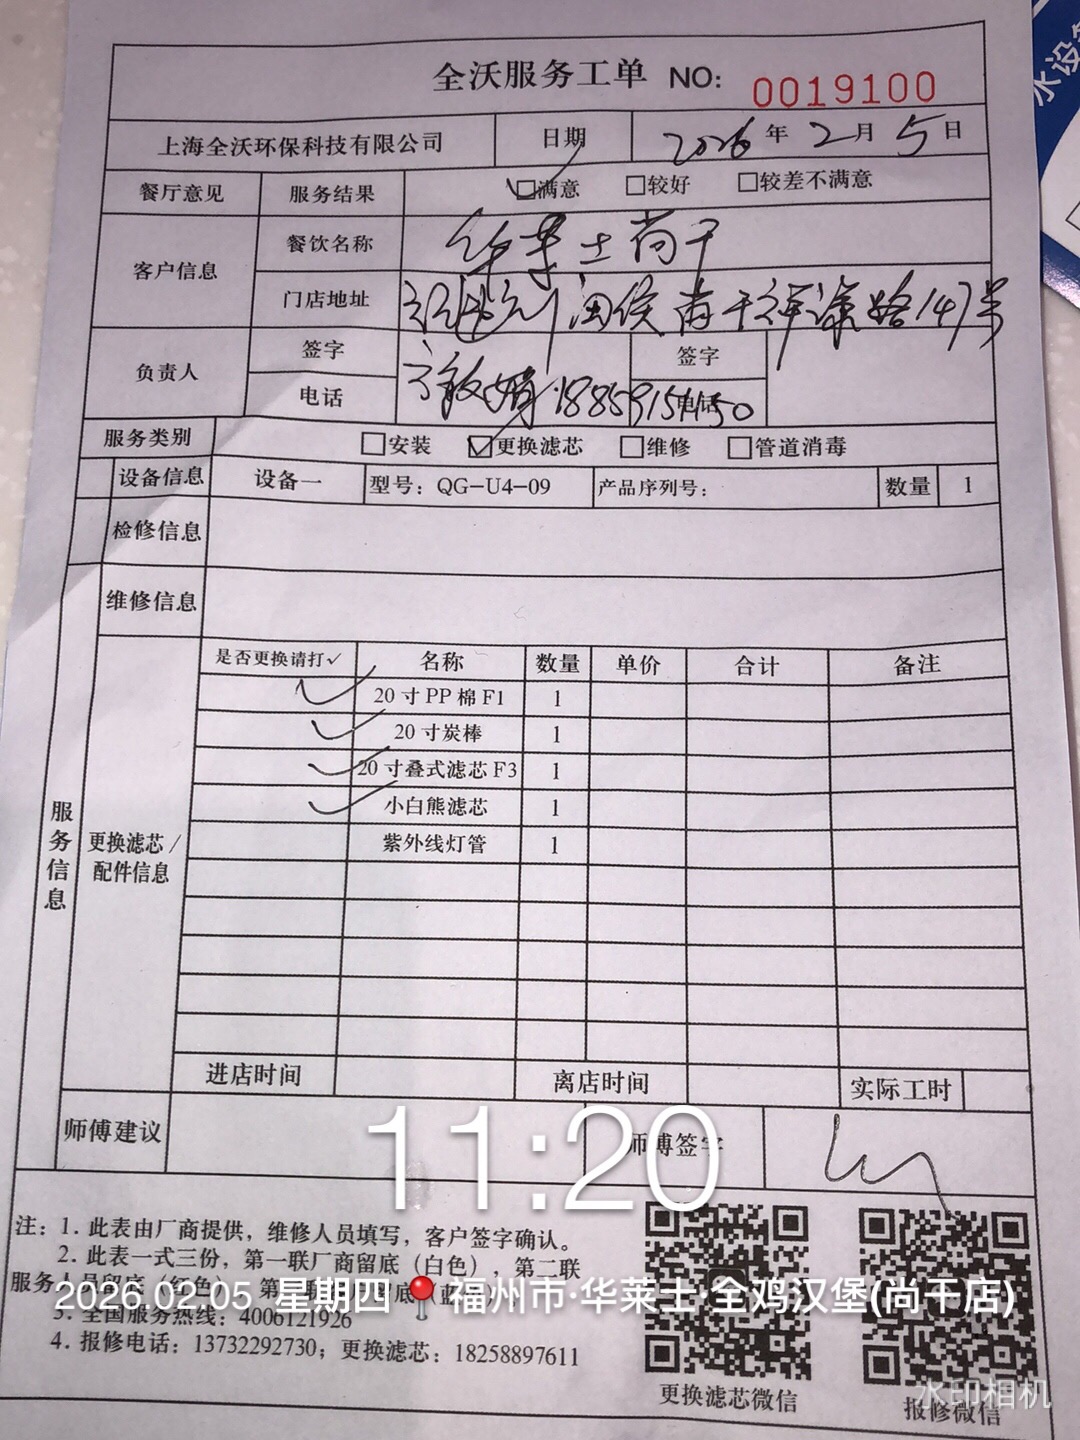 全沃服务工单 NO: 0019100
上海全沃环保科技有限公司 日期 2026年2月5日
餐厅意见 服务结果 ☑满意 □较好 □较差不满意
客户信息 餐饮名称 华莱士尚干
门店地址 福州闽侯尚干祥谦路147号
负责人 签字 签字
电话 电话
服务类别 □安装 ☑更换滤芯 □维修 □管道消毒
设备信息 设备一 型号: QG-U4-09 产品序列号: 数量 1
检修信息
维修信息
是否更换请打✓ 名称 数量 单价 合计 备注
✓ 20寸PP棉F1 1
✓ 20寸炭棒 1
✓ 20寸叠式滤芯F3 1
✓ 小白熊滤芯 1
紫外线灯管 1
服务信息
更换滤芯/
配件信息
进店时间 离店时间 实际工时
师傅建议 师傅签字
11:20
注: 1. 此表由厂商提供，维修人员填写，客户签字确认。
2. 此表一式三份，第一联厂商留底（白色），第二联
服务人员留底（红色），第
2026.02.05 星期四 📍福州市·华莱士·全鸡汉堡(尚干店)
3. 全国服务热线: 4006121926
4. 报修电话: 13732292730; 更换滤芯: 18258897611
更换滤芯微信
报修微信
水印相机
水设备